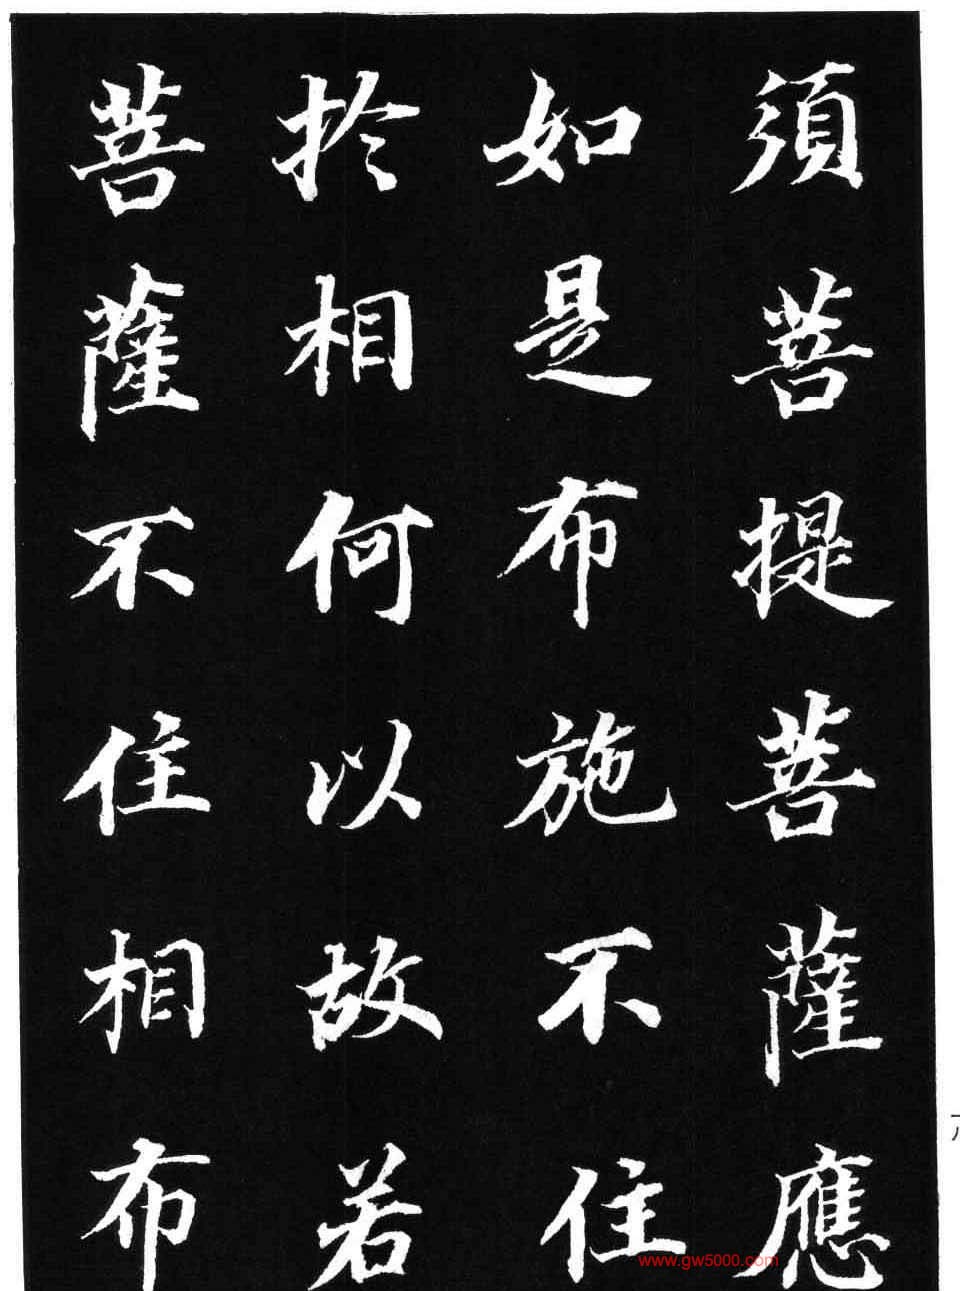 須菩提菩薩應
如是布施不住
於相何以故若
菩薩不住相布
www.gw5000.com